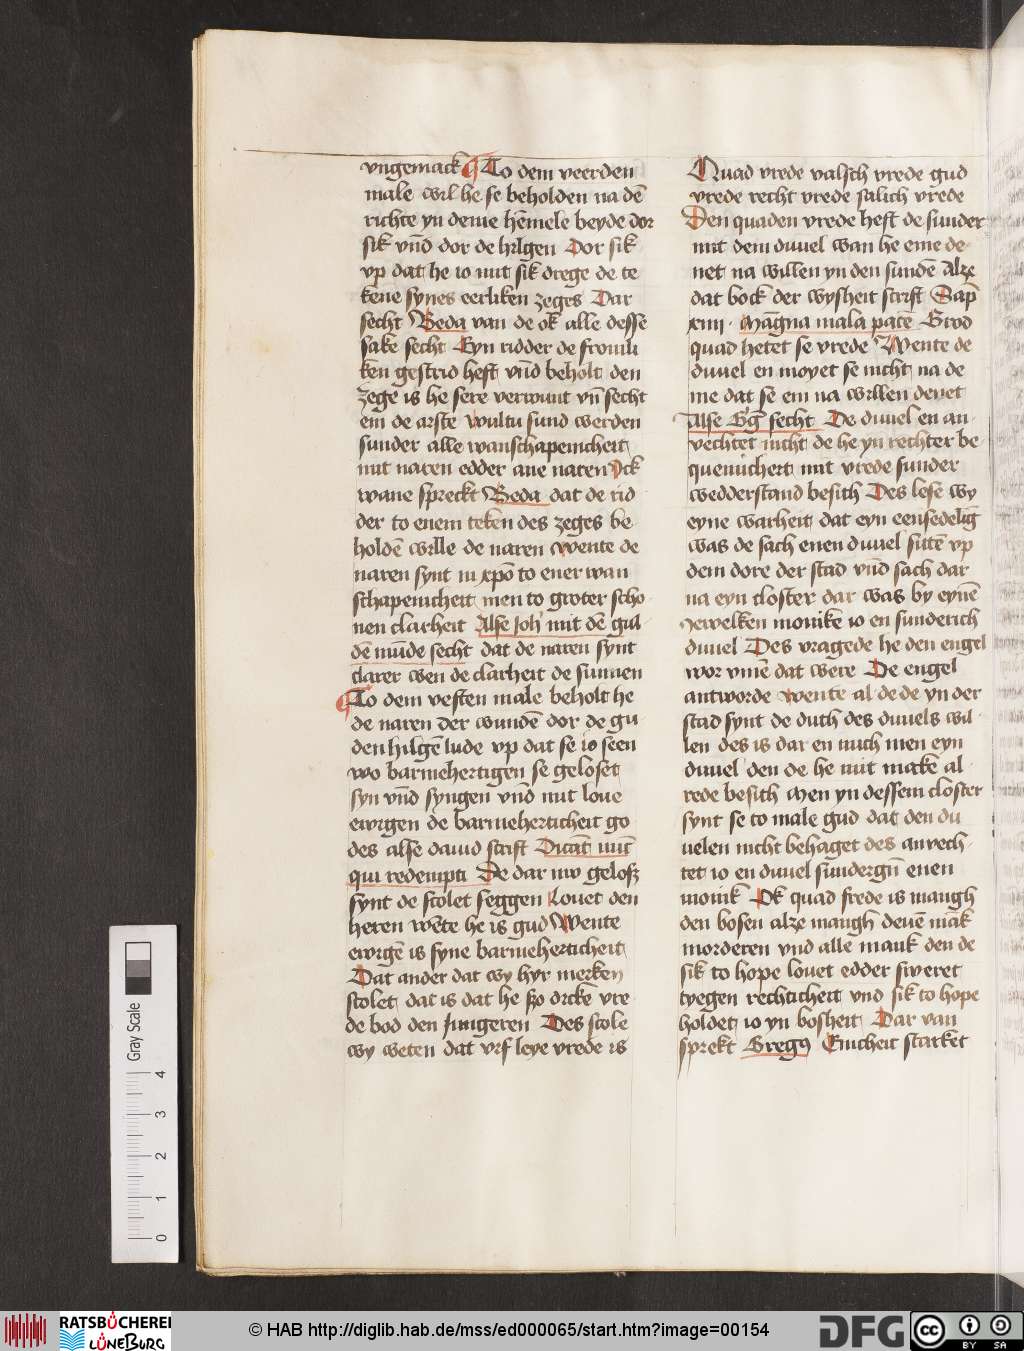 vngemack To dem veerden
male wil he se beholden na dē
richte yn deme hēmele beyde dor
sik vn̄d dor de hilgen Dor sik
vp dat he io mit sik drege de te
kene synes eerliken zeges Dar
secht Beda van de ok alle desse
sake secht Eyn ridder de fromli
ken gestrid heft vn̄d beholt den
zege is he sere verwunt vn̄ secht
em de arste wultu sund werden
sunder alle wanschapenicheit
mit naren edder ane naren Ock
wane spreckt Beda dat de rid
der to enem teken des zeges be
holdē wille de naren wente de
naren synt in xp̄o to ener wan
schapenicheit men to groter scho
nen clarheit Alse Joh̄ mit dē gul
dē mūde secht dat de naren synt
clarer wen de clarheit de sunnen
To dem veften male beholt he
de naren der wundē dor de gu
den hilgē lude vp dat se io seen
wo barmehertigen se geloset
syn vn̄d syngen vn̄d mit loue
ewigen de barmeherticheit go
des alse dauid scrift Dicāt nūc
qui redempti De dar nw geloſz
synt de scolet seggen Louet den
heren wēte he is gud Wente
ewigē is syne barmeherticheit
Dat ander dat wy hyr merken
scolet dat is dat he ſzo dicke vre
de bod den Jungeren Des scole
wy weten dat vif leye vrede is
Quad vrede valsch vrede gud
vrede recht vrede salich vrede
Den quaden vrede heft de sunder
mit dem duuel wan he eme de
net na willen yn den sundē Alze
dat bock der wysheit scrift Sap̄
xiiii Māgna mala pacē Grod
quad hetet se vrede Wente de
duuel en moyet se nicht na de
me dat se em na willen denet
Alse Gg̅ secht De duuel en an
vechtet nicht de he yn rechter be
quemichert mit vrede sunder
wedderstand besith Des lese wy
eyne warheit dat eyn eensedelig̅
was de sach enen duuel sittē vp
dem dore der stad vn̄d sach dar
na eyn closter dar was by eynē
iewelken monike io en sunderich
duuel Des vragede he den engel
wor vmē dat were De engel
antworde wente al de de yn der
stad synt de duth des duuels wil
len des is dar en nuch men eyn
duuel den de he mit make al
rede besith Men yn dessem closter
synt se to male gud dat den du
uelen nicht behaget des anvech
tet io en duuel sundergn̄ enen
monik Ok quad frede is mangh
den bosen alze mangh deuē māk
morderen vnd alle mank den de
sik to hope louet edder sweret
tyegen rechticheit vnd sik to hope
holdet io yn bosheit Dar van
sprekt Gregꝰ Enicheit starket
Gray Scale
4
3
2
1
0
RATSBÜCHEREI
LÜNEBURG
© HAB http://diglib.hab.de/mss/ed000065/start.htm?image=00154
DFG
cc
BY SA